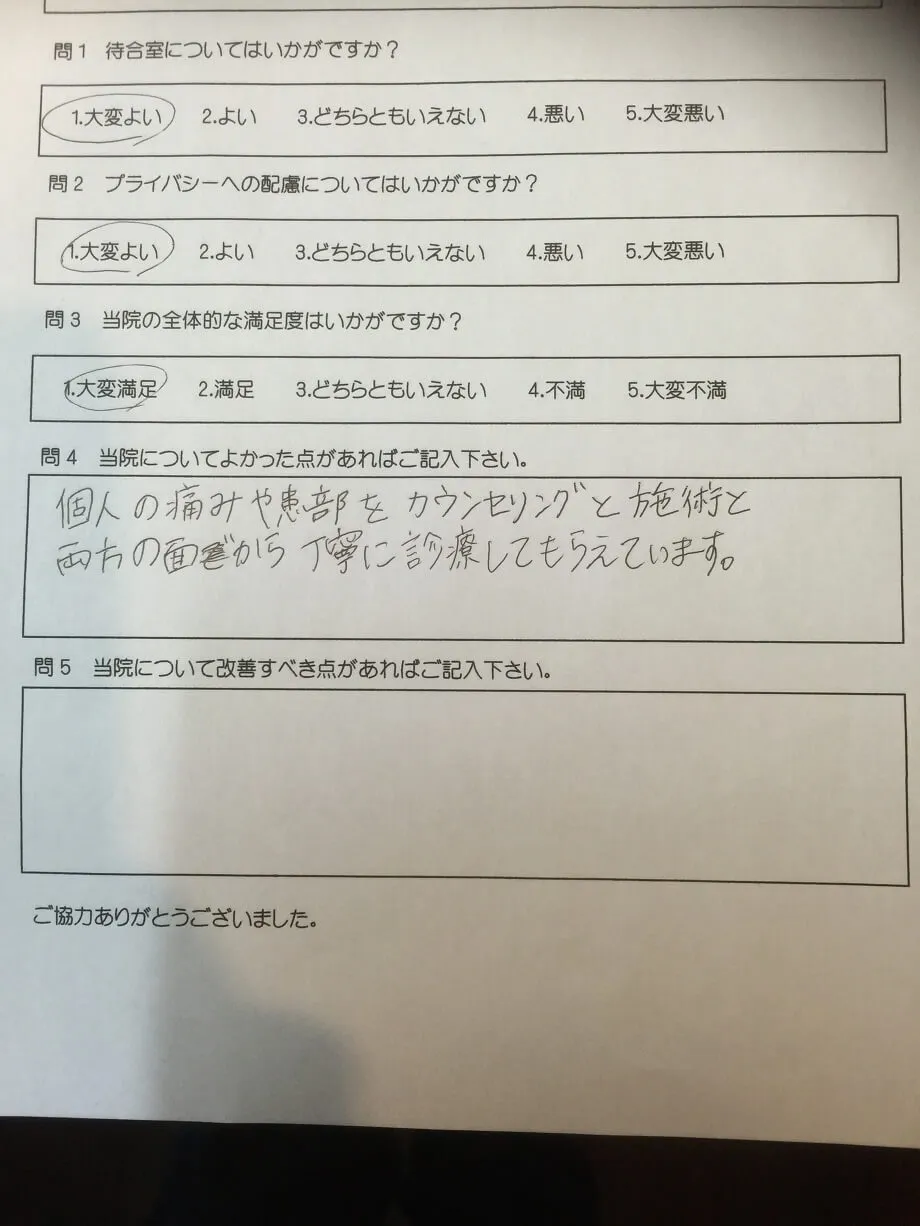 問1 待合室についてはいかがですか？
1.大変よい 2.よい 3.どちらともいえない 4.悪い 5.大変悪い
問2 プライバシーへの配慮についてはいかがですか？
1.大変よい 2.よい 3.どちらともいえない 4.悪い 5.大変悪い
問3 当院の全体的な満足度はいかがですか？
1.大変満足 2.満足 3.どちらともいえない 4.不満 5.大変不満
問4 当院についてよかった点があればご記入下さい。
個人の痛みや患部をカウンセリングと施術と
両方の面から丁寧に診療してもらえています。
問5 当院について改善すべき点があればご記入下さい。
ご協力ありがとうございました。